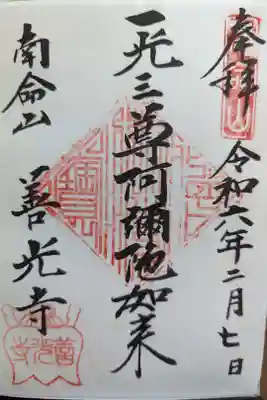 奉拝
令和六年二月七日
一光三尊阿彌陀如来
南命山
善光寺
善光寺